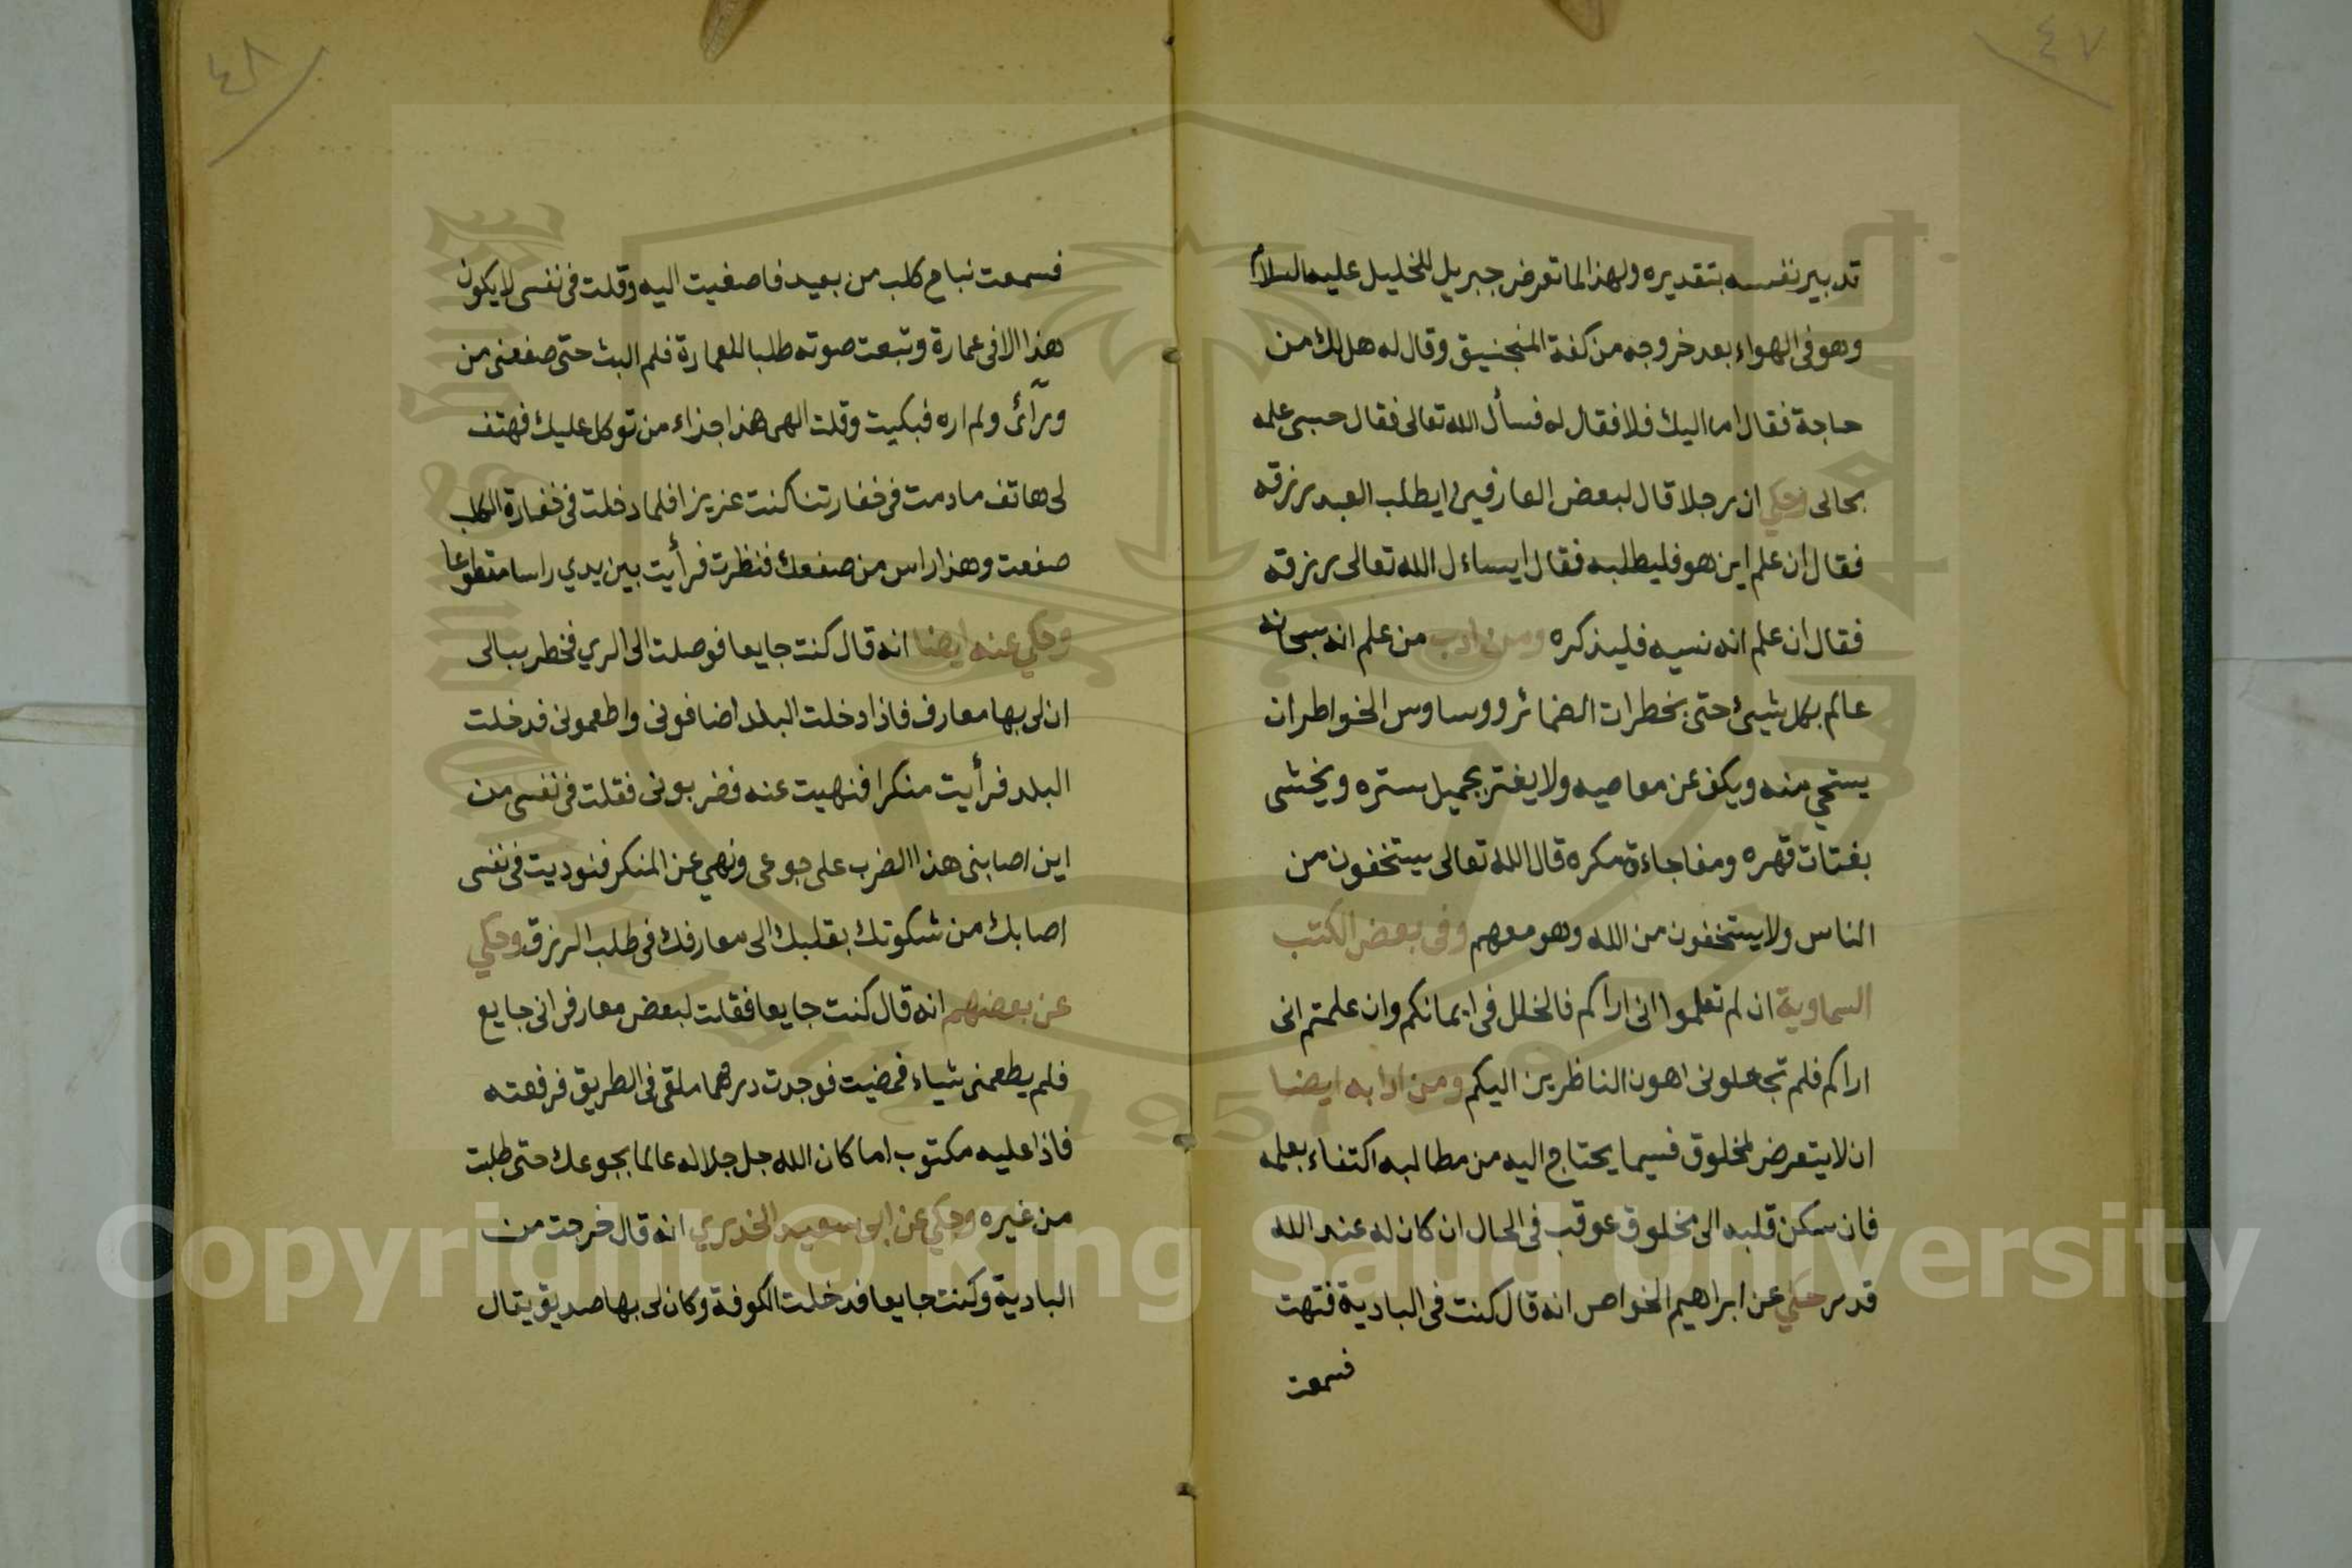 ٤٧
تدبير نفسه بتقديره ولهذا لما تعرض جبريل للخليل عليه السلام
وهو في الهواء بعد خروجه من كفة المنجنيق وقال له هل لك من
حاجة فقال اما اليك فلا فقال له فسأل الله تعالى فقال حسبى علمه
بحالى وحكي ان رجلا قال لبعض العارفين ايطلب العبد رزقه
فقال ان علم اين هو فليطلبه فقال ايساءل الله تعالى رزقه
فقال ان علم انه نسيه فليذكره ومن ادب من علم انه سبحانه
عالم بكل شيئ حتى بخطرات الضمائر ووساوس الخواطر ان
يستحي منه ويكف عن معاصيه ولا يغتر بجميل ستره ويخشى
بغتات قهره ومفاجاءة مكره قال الله تعالى يستخفون من
الناس ولا يستخفون من الله وهو معهم وفى بعض الكتب
السماوية ان لم تعلموا انى اراكم فالخلل فى ايمانكم وان علمتم انى
اراكم فلم تجعلونى اهون الناظرين اليكم ومن ادابه ايضا
ان لا يتعرض لمخلوق فيما يحتاج اليه من مطالبه اكتفاء بعلمه
فان سكن قلبه الى مخلوق عوقب فى الحال ان كان له عند الله
قدر حكي عن ابراهيم الخواص انه قال كنت فى البادية فتهت
فسمعت
٤٨
فسمعت نباح كلب من بعيد فاصغيت اليه وقلت فى نفسى لا يكون
هذا الا فى عمارة وتبعت صوته طلبا للعمارة فلم البث حتى صفعنى من
ورآئى ولم اره فبكيت وقلت الهى هذا جزاء من توكل عليك فهتف
لى هاتف مادمت فى خفارتنا كنت عزيزا فلما دخلت فى خفارة الكلب
صفعت وهذا راس من صفعك فنظرت فرأيت بين يدي راسا مقطوعا
وحكي عنه ايضا انه قال كنت جايعا فوصلت الى الري فخطر ببالى
ان لى بها معارف فاذا دخلت البلد اضافونى واطعمونى فدخلت
البلد فرأيت منكرا فنهيت عنه فضربونى فقلت فى نفسى من
اين اصابنى هذا الضرب على جوعى ونهي عن المنكر فنوديت فى نفسى
اصابك من شكوتك بقلبك الى معارفك فى طلب الرزق وحكي
عن بعضهم انه قال كنت جايعا فقلت لبعض معارفى انى جايع
فلم يطعمنى شياء فمضيت فوجدت درهما ملقى فى الطريق فرفعته
فاذا عليه مكتوب اما كان الله جل جلاله عالما بجوعك حتى طلبت
من غيره وحكي عن ابى سعيد الخدري انه قال خرجت من
البادية وكنت جايعا فدخلت الكوفة وكان لى بها صديق يقال
Copyright © King Saud University
1957